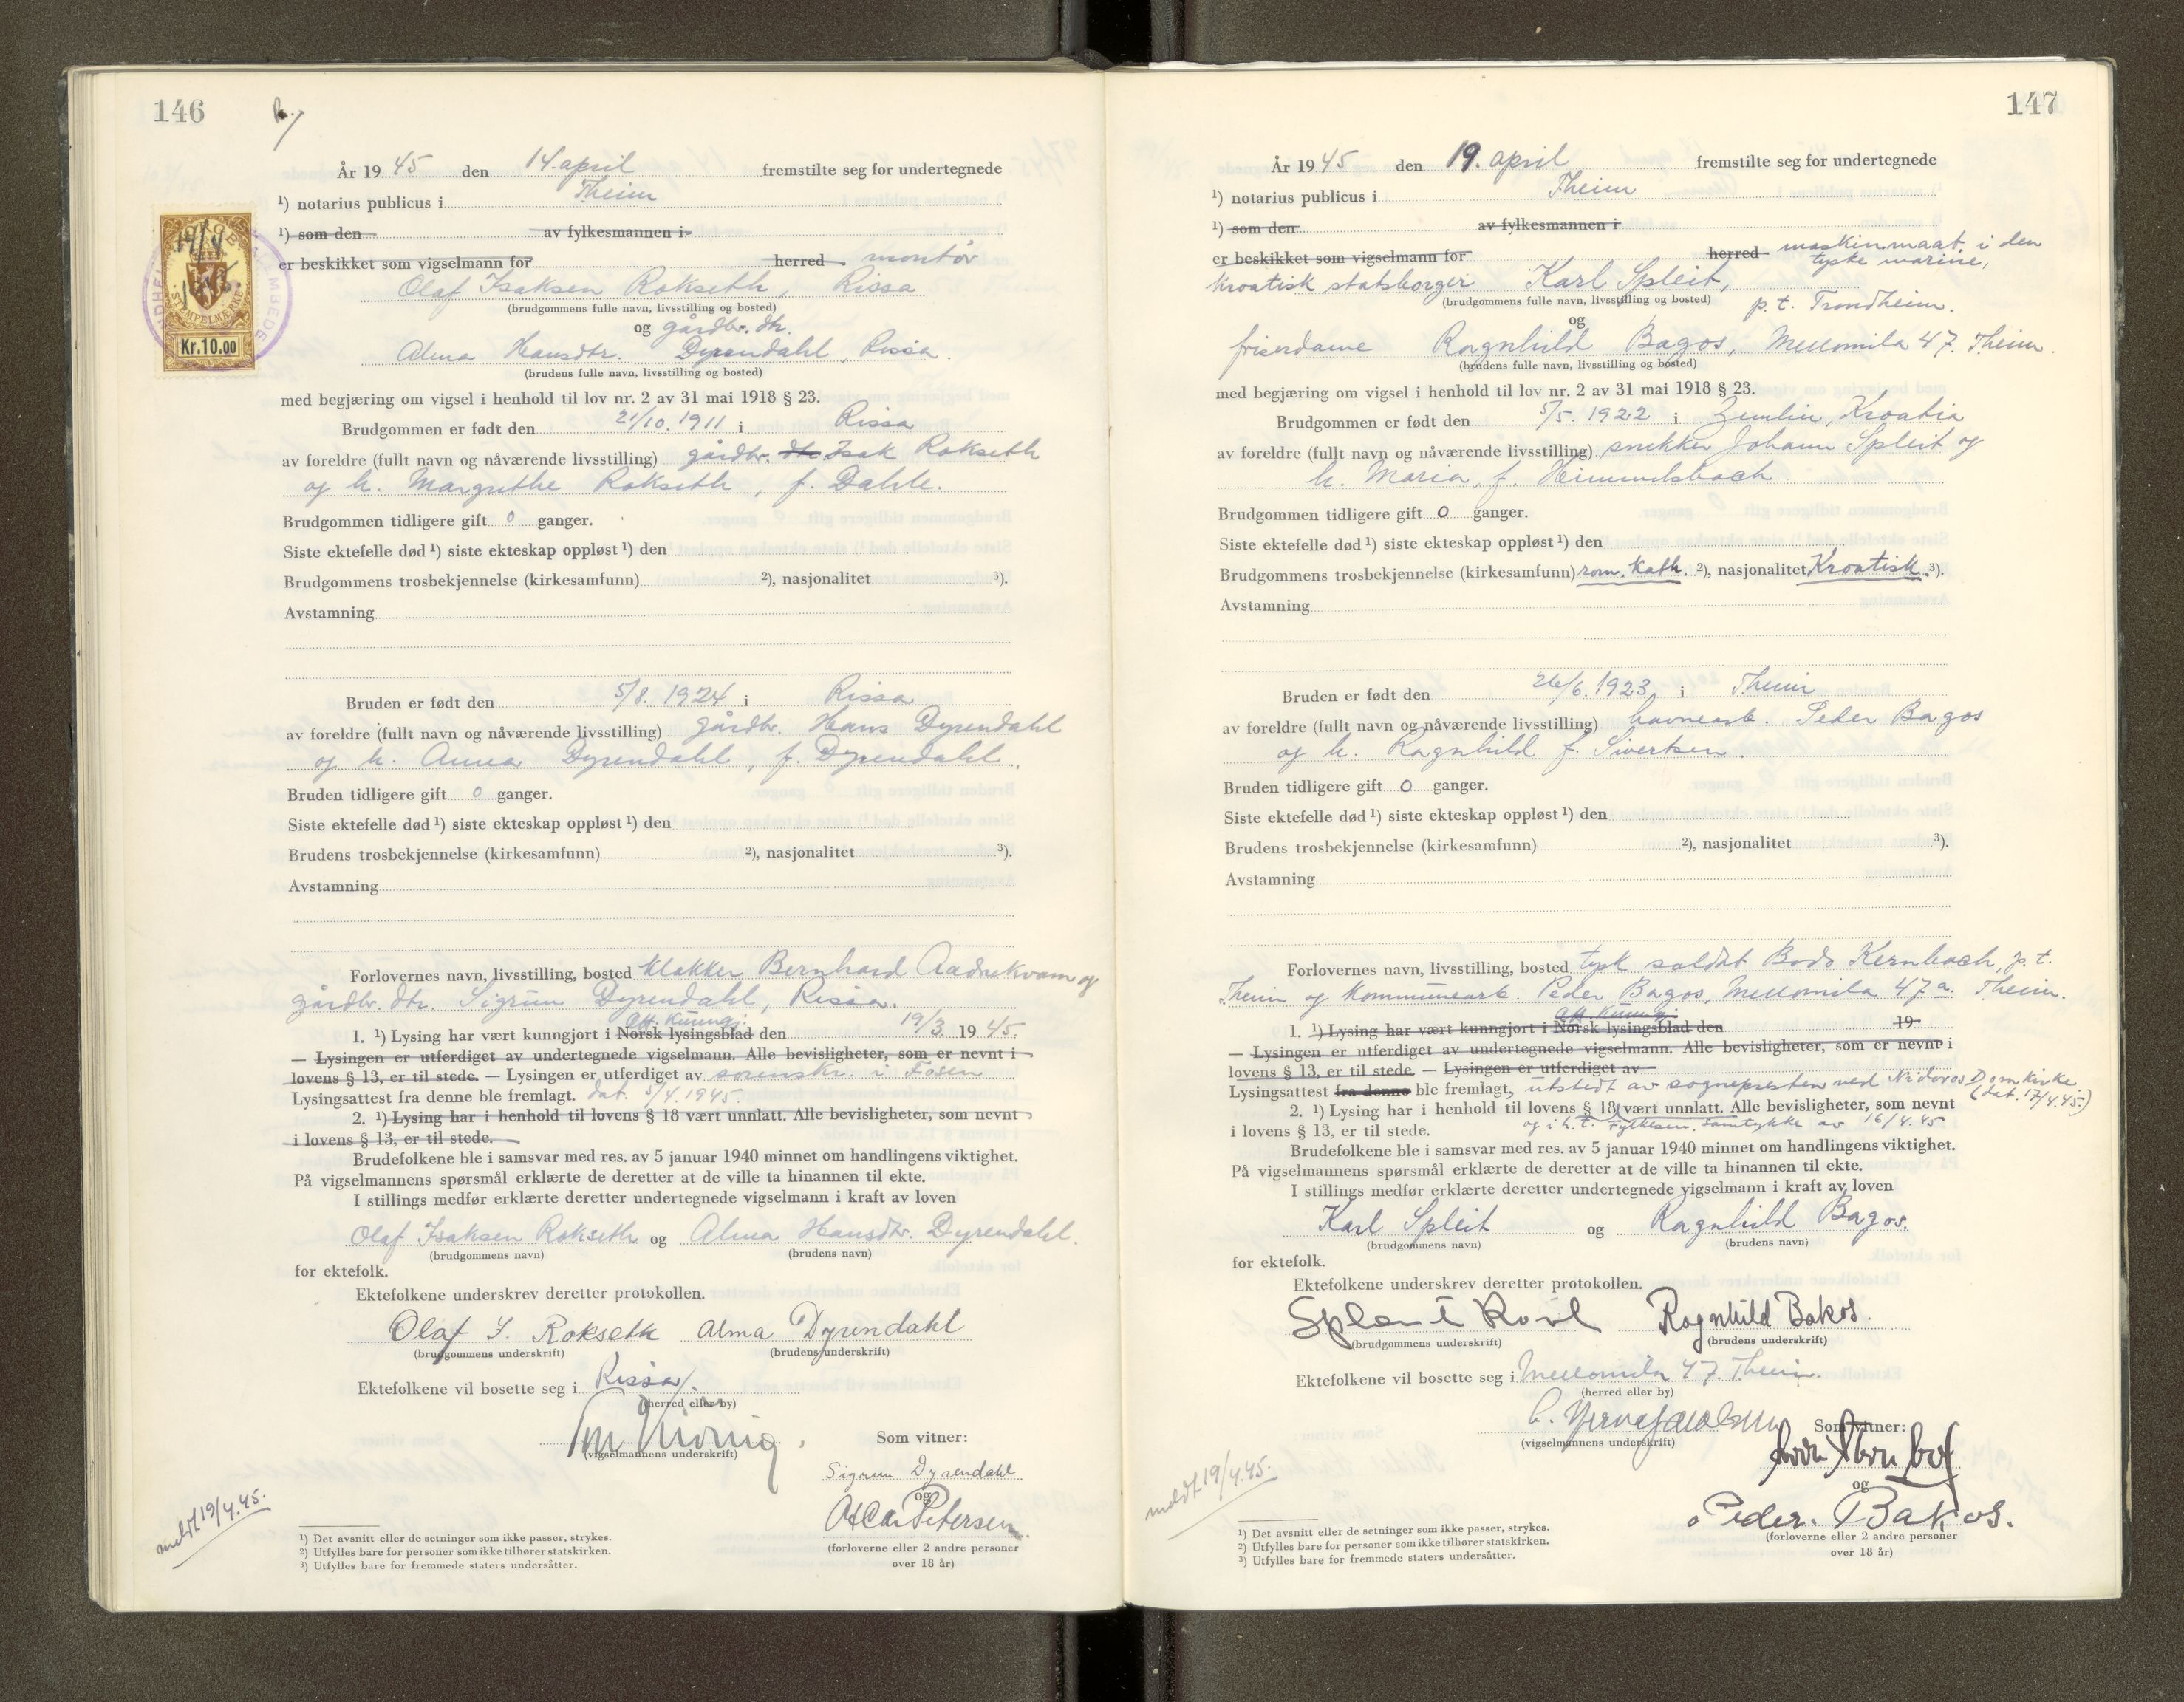 146
År 1945 den 14. april fremstilte seg for undertegnede
¹) notarius publicus i Theim
¹) som den av fylkesmannen i
er beskikket som vigselmann for herred montør
Olaf Isaksen Rokseth, Rissa
(brudgommens fulle navn, livsstilling og bosted)
og gårdbr. dtr.
Alma Hansdtr. Dyrendahl, Rissa.
(brudens fulle navn, livsstilling og bosted)
Kr. 10.00
med begjæring om vigsel i henhold til lov nr. 2 av 31 mai 1918 § 23.
Brudgommen er født den 21/10. 1911 i Rissa
av foreldre (fullt navn og nåværende livsstilling) gårdbr. dtr. Isak Rokseth
og h. Margrethe Rokseth, f. Dahle.
Brudgommen tidligere gift 0 ganger.
Siste ektefelle død ¹) siste ekteskap oppløst ¹) den
Brudgommens trosbekjennelse (kirkesamfunn) ²), nasjonalitet ³).
Avstamning
Bruden er født den 5/8. 1924 i Rissa
av foreldre (fullt navn og nåværende livsstilling) gårdbr. Hans Dyrendahl
og h. Anna Dyrendahl, f. Dyrendahl.
Bruden tidligere gift 0 ganger.
Siste ektefelle død ¹) siste ekteskap oppløst ¹) den
Brudens trosbekjennelse (kirkesamfunn) ²), nasjonalitet ³).
Avstamning
Forlovernes navn, livsstilling, bosted klokker Bernhard Aadnekvam og
gårdbr. dtr. Sigrun Dyrendahl, Rissa.
Off. kunngj.
1. ¹) Lysing har vært kunngjort i Norsk lysingsblad den 19/3. 1945.
— Lysingen er utferdiget av undertegnede vigselmann. Alle bevisligheter, som er nevnt i
lovens § 13, er til stede. — Lysingen er utferdiget av sorenskr. i Fosen
Lysingsattest fra denne ble fremlagt. dat. 5/4. 1945.
2. ¹) Lysing har i henhold til lovens § 18 vært unnlatt. Alle bevisligheter, som nevnt
i lovens § 13, er til stede.
Brudefolkene ble i samsvar med res. av 5 januar 1940 minnet om handlingens viktighet.
På vigselmannens spørsmål erklærte de deretter at de ville ta hinannen til ekte.
I stillings medfør erklærte deretter undertegnede vigselmann i kraft av loven
Olaf Isaksen Rokseth og Alma Hansdtr. Dyrendahl.
(brudgommens navn) (brudens navn)
for ektefolk.
Ektefolkene underskrev deretter protokollen.
Olaf I. Rokseth Alma Dyrendahl
(brudgommens underskrift) (brudens underskrift)
Ektefolkene vil bosette seg i Rissa.
(herred eller by)
(vigselmannens underskrift)
Som vitner:
Sigrun Dyrendahl
og
Petersen
(forloverne eller 2 andre personer
over 18 år)
meldt 19/4.45.
¹) Det avsnitt eller de setninger som ikke passer, strykes.
²) Utfylles bare for personer som ikke tilhører statskirken.
³) Utfylles bare for fremmede staters undersåtter.
147
År 1945 den 19. april fremstilte seg for undertegnede
¹) notarius publicus i Theim
¹) som den av fylkesmannen i
er beskikket som vigselmann for herred maskinmaat i den
tyske marine,
kroatisk statsborger Karl Spleit,
(brudgommens fulle navn, livsstilling og bosted) p. t. Trondheim.
og
friserdame Ragnhild Bagos, Mellomila 47. Theim.
(brudens fulle navn, livsstilling og bosted)
med begjæring om vigsel i henhold til lov nr. 2 av 31 mai 1918 § 23.
Brudgommen er født den 5/5. 1922 i Zemlin, Kroatia
av foreldre (fullt navn og nåværende livsstilling) snekker Johann Spleit og
h. Maria, f. Himmelsbach.
Brudgommen tidligere gift 0 ganger.
Siste ektefelle død ¹) siste ekteskap oppløst ¹) den
Brudgommens trosbekjennelse (kirkesamfunn) rom. kath. ²), nasjonalitet Kroatisk. ³).
Avstamning
Bruden er født den 26/6. 1923 i Theim
av foreldre (fullt navn og nåværende livsstilling) havnearb. Peder Bagos
og h. Ragnhild f. Sivertsen.
Bruden tidligere gift 0 ganger.
Siste ektefelle død ¹) siste ekteskap oppløst ¹) den
Brudens trosbekjennelse (kirkesamfunn) ²), nasjonalitet ³).
Avstamning
Forlovernes navn, livsstilling, bosted tysk soldat Bodo Kernbach, p. t.
Theim og kommunearb. Peder Bagos, Mellomila 47 a. Theim.
Off. kunngj.
1. ¹) Lysing har vært kunngjort i Norsk lysingsblad den 19
— Lysingen er utferdiget av undertegnede vigselmann. Alle bevisligheter, som er nevnt i
lovens § 13, er til stede. — Lysingen er utferdiget av
Lysingsattest fra denne ble fremlagt, utstedt av sognepresten ved Nidaros Domkirke
(dat. 17/4.45.)
2. ¹) Lysing har i henhold til lovens § 18 vært unnlatt. Alle bevisligheter, som nevnt
i lovens § 13, er til stede. og i h. t. Fylkesm. samtykke av 16/4.45
Brudefolkene ble i samsvar med res. av 5 januar 1940 minnet om handlingens viktighet.
På vigselmannens spørsmål erklærte de deretter at de ville ta hinannen til ekte.
I stillings medfør erklærte deretter undertegnede vigselmann i kraft av loven
Karl Spleit og Ragnhild Bagos.
(brudgommens navn) (brudens navn)
for ektefolk.
Ektefolkene underskrev deretter protokollen.
Ragnhild Bakos.
(brudgommens underskrift) (brudens underskrift)
Ektefolkene vil bosette seg i Mellomila 47. Theim.
(herred eller by)
(vigselmannens underskrift)
Som vitner:
og
Peder. Bakos.
(forloverne eller 2 andre personer
over 18 år)
meldt 19/4.45.
¹) Det avsnitt eller de setninger som ikke passer, strykes.
²) Utfylles bare for personer som ikke tilhører statskirken.
³) Utfylles bare for fremmede staters undersåtter.